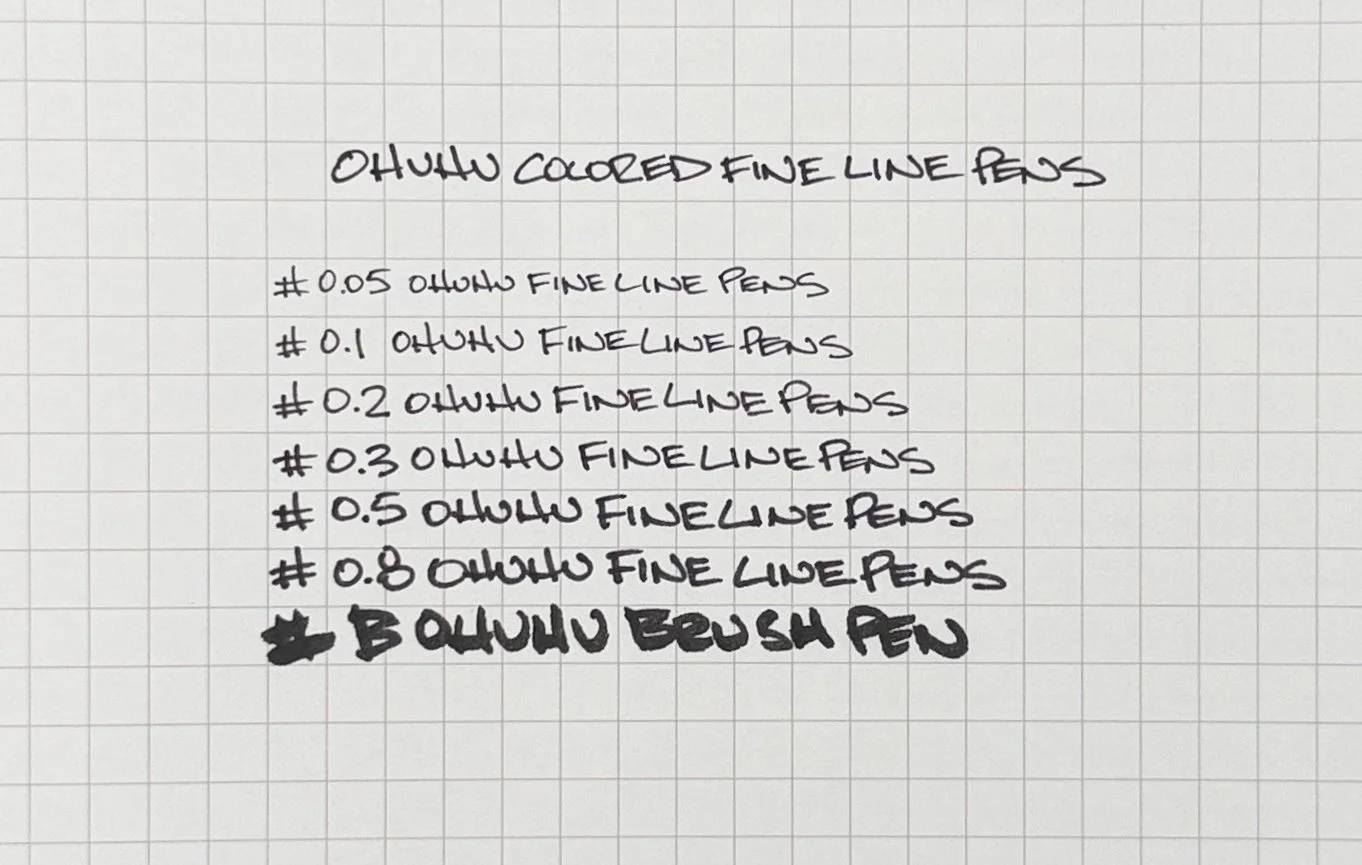 OHUHU COLORED FINE LINE PENS
# 0.05 OHUHU FINE LINE PENS
# 0.1 OHUHU FINE LINE PENS
# 0.2 OHUHU FINE LINE PENS
# 0.3 OHUHU FINE LINE PENS
# 0.5 OHUHU FINE LINE PENS
# 0.8 OHUHU FINE LINE PENS
# B OHUHU BRUSH PEN